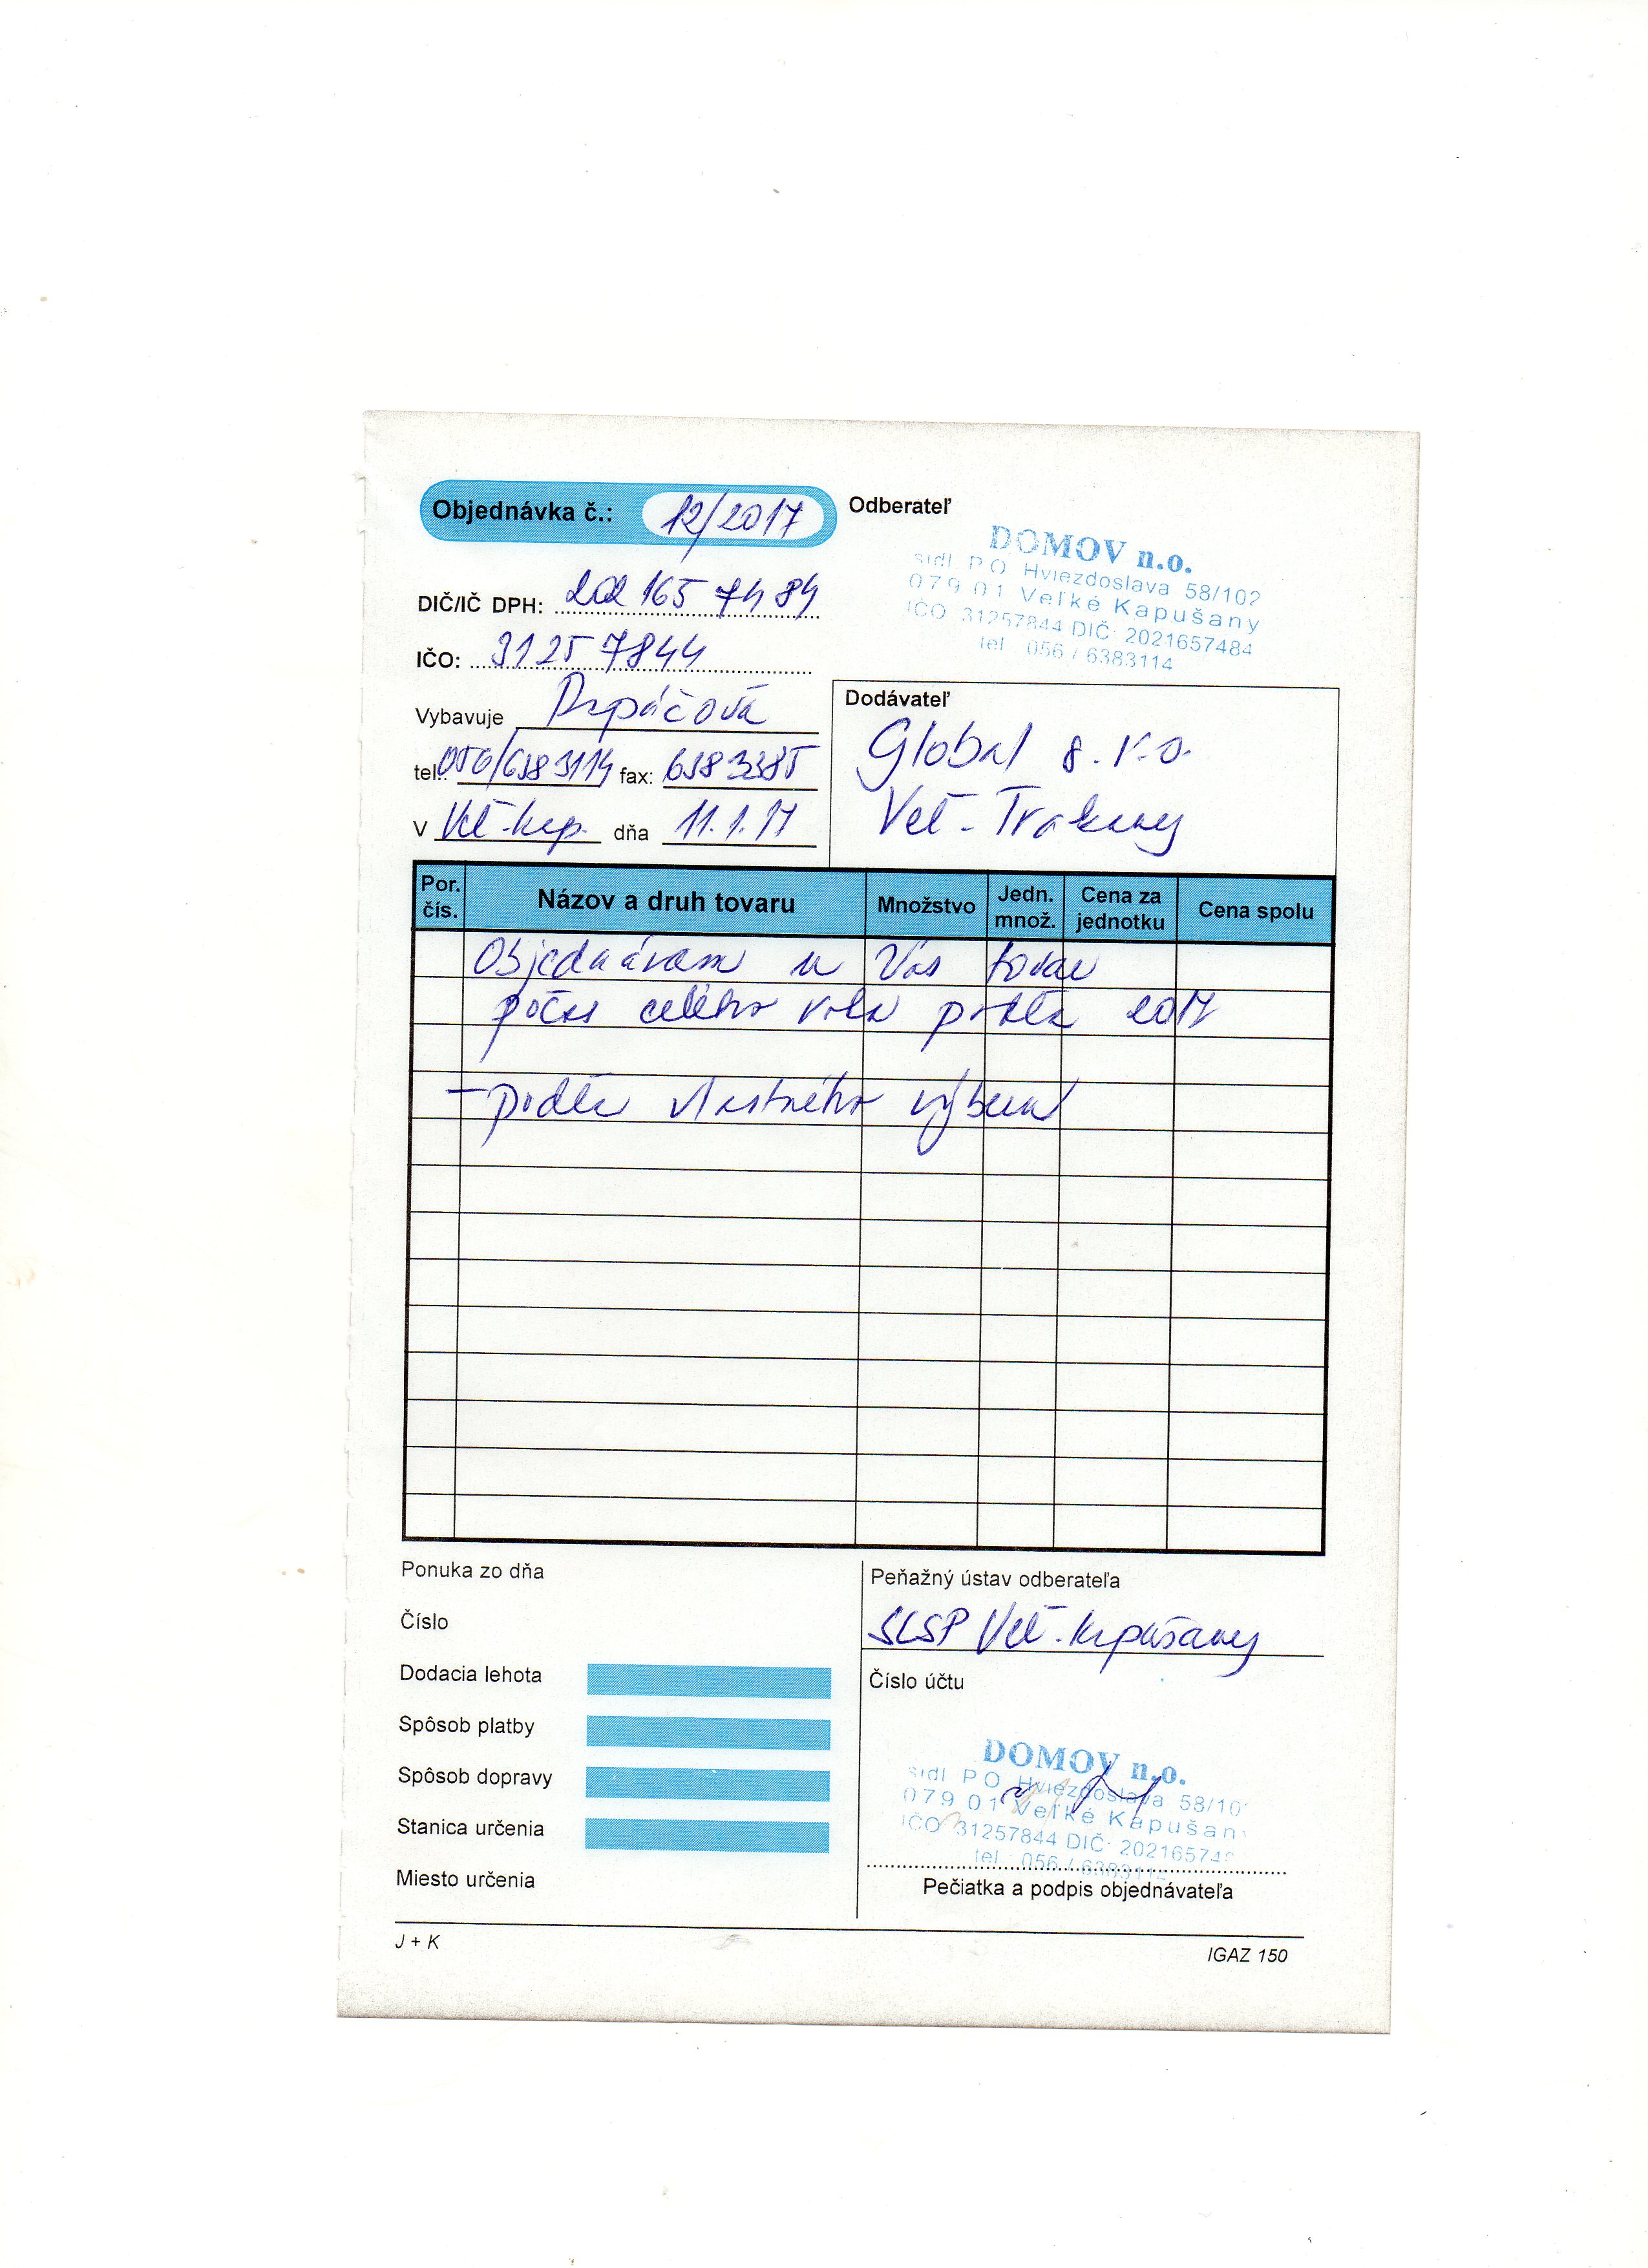 Objednávka č.: 12/2017
Odberateľ
DOMOV n.o.
sídl PO Hviezdoslava 58/102
079 01 Veľké Kapušany
IČO 31257844 DIČ: 2021657484
tel : 056 / 6383114
DIČ/IČ DPH: 202 165 7484
IČO: 3125 7844
Vybavuje
tel.: 056/638 3114 fax: 638 3385
V Veľ. Kap. dňa 11.1.17
Dodávateľ
Global s.r.o.
Veľ. Trakany
Por. čís.
Názov a druh tovaru
Množstvo
Jedn. množ.
Cena za jednotku
Cena spolu
Objednávam u Vás tovar
počas celého roka podľa 2017
- podľa vlastného výberu
Ponuka zo dňa
Číslo
Dodacia lehota
Spôsob platby
Spôsob dopravy
Stanica určenia
Miesto určenia
Peňažný ústav odberateľa
SLSP Veľ. Kapušany
Číslo účtu
DOMOV n.o.
sídl PO Hviezdoslava 58/10
079 01 Veľké Kapušan
IČO 31257844 DIČ: 20216574
tel : 056 / 638311
Pečiatka a podpis objednávateľa
J + K
IGAZ 150